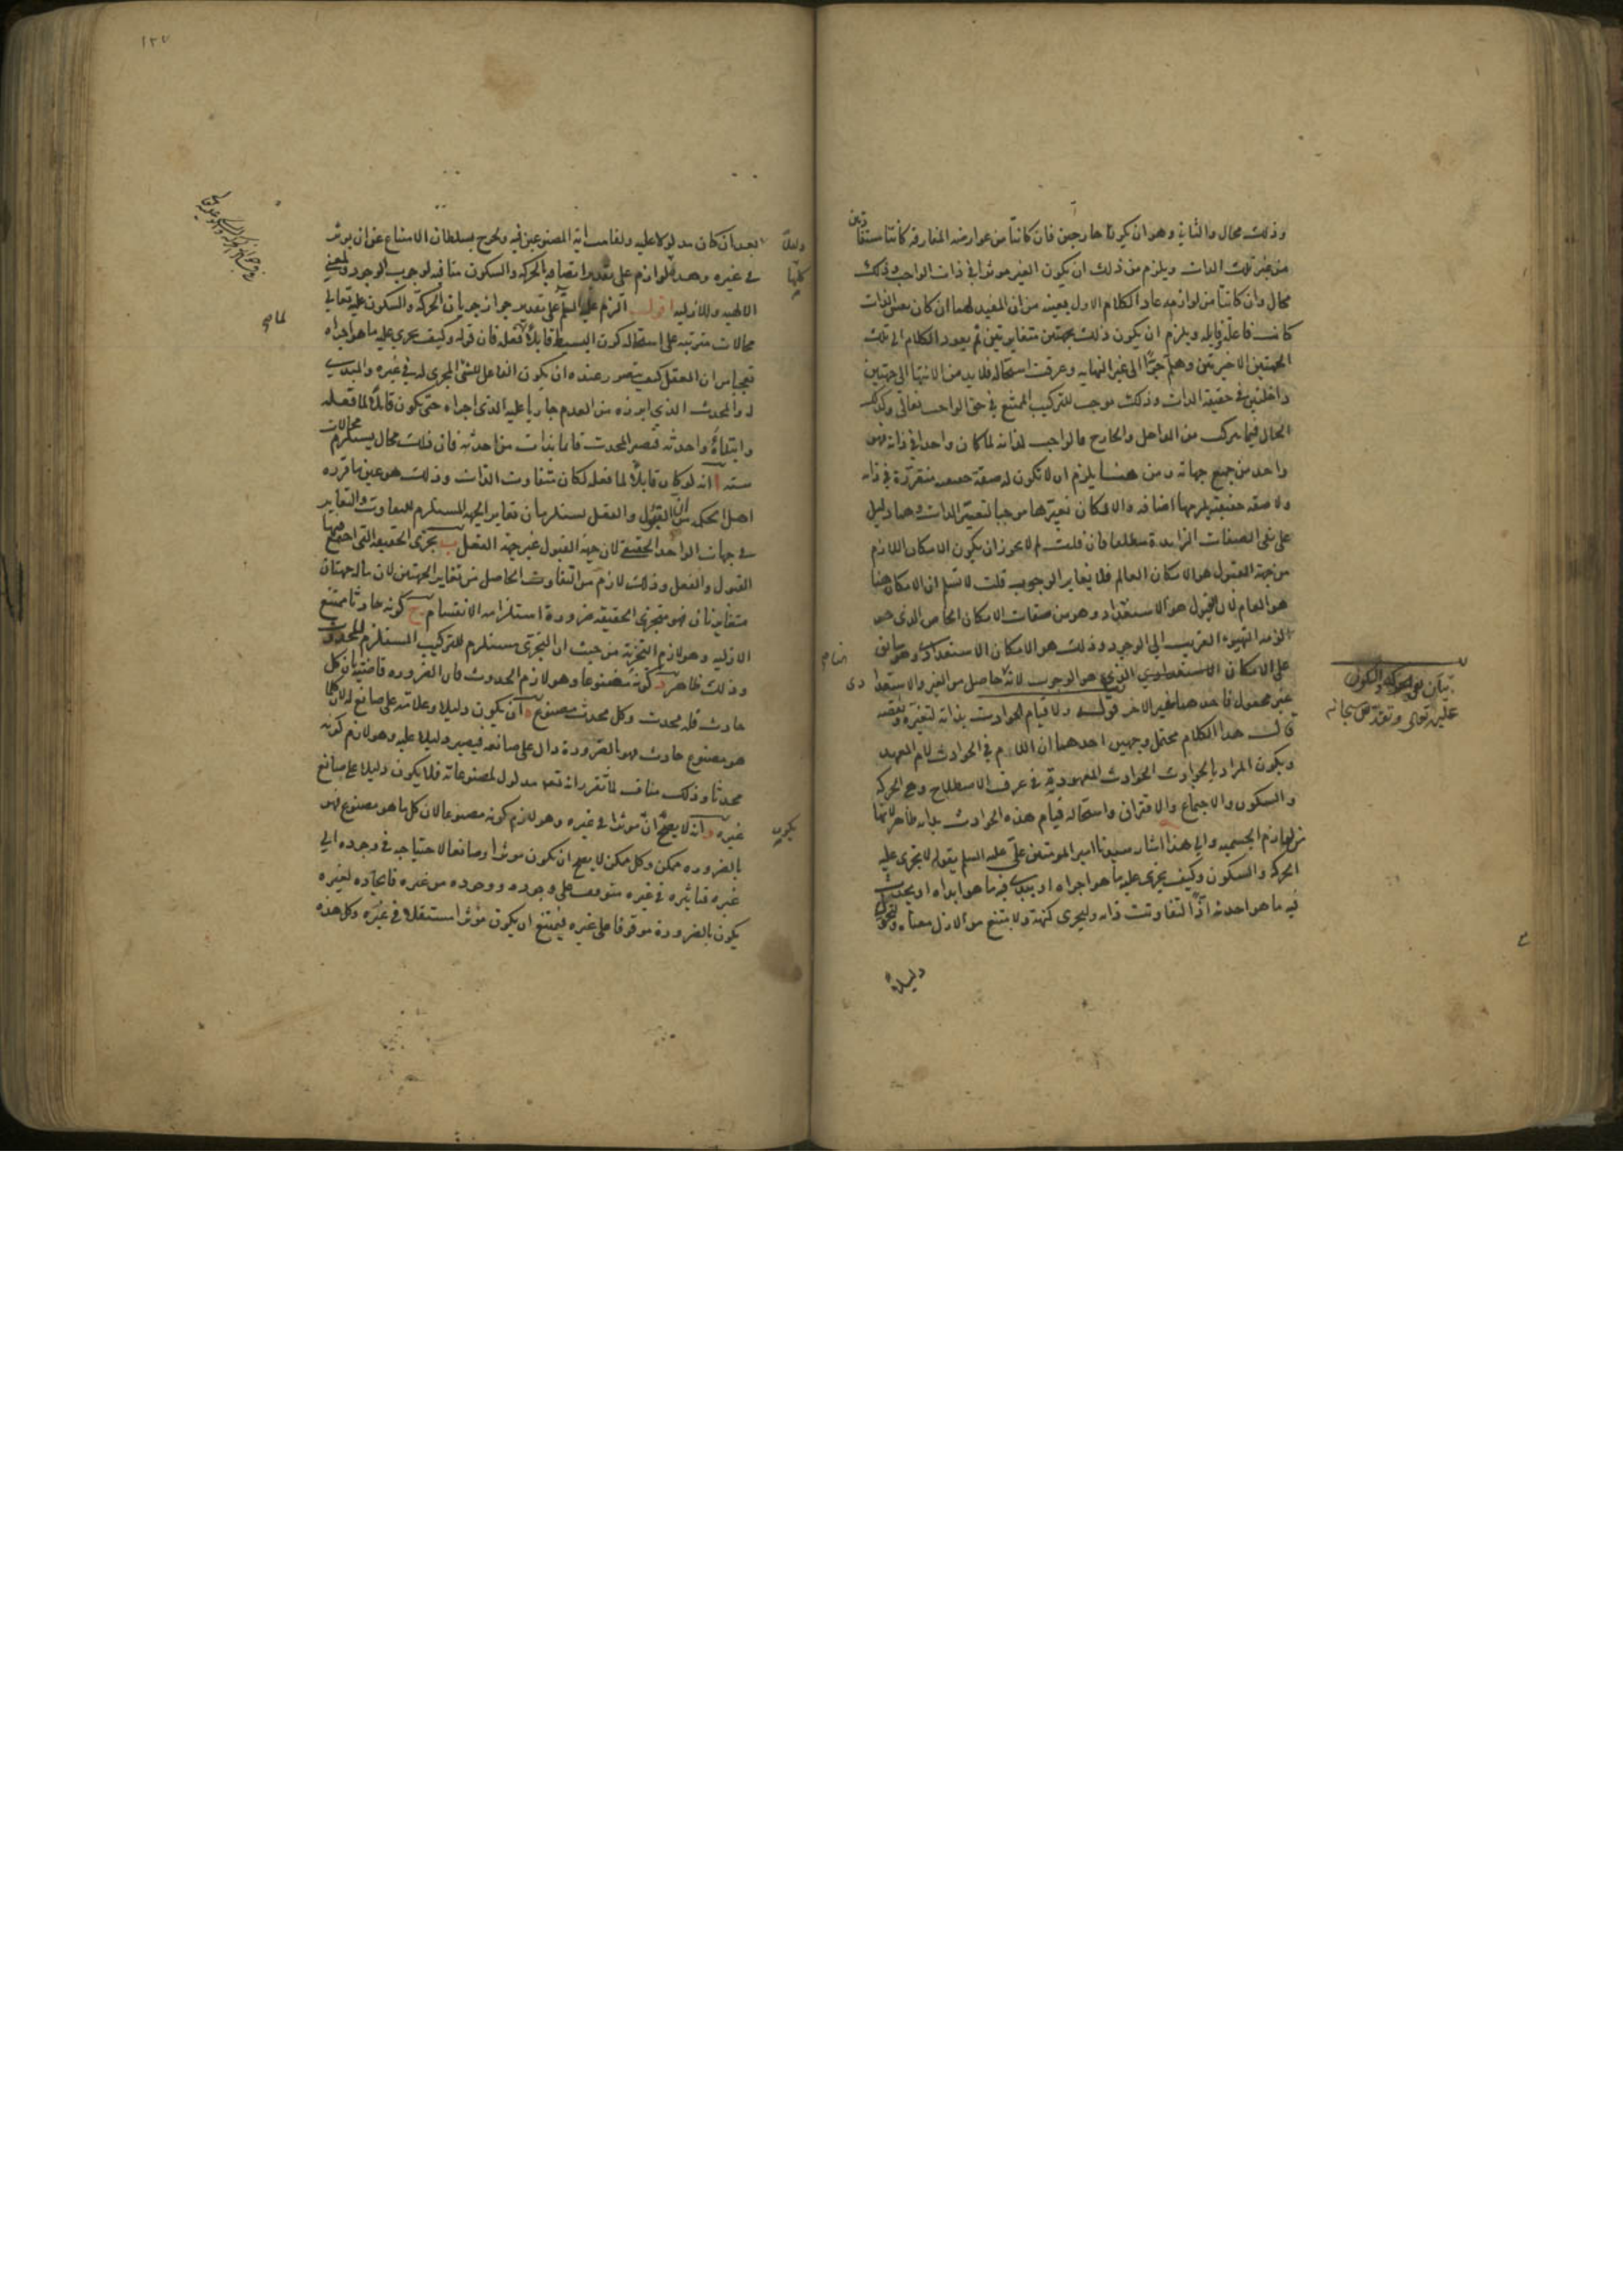 وذلك محال والثاني وهو ان يكونا خارجين فان كانتا من عوارضه المفارقه كانتا مستفادتين
من غير تلك الذات ويلزم من ذلك ان يكون الغير موثرا في ذات الواجب وذلك
محال وان كانتا من لوازمه عاد الكلام الاول بعينه من ان المفيد لهما ان كان نفس الذات
كانت فاعلة وقابله ويلزم ان يكون ذلك بجهتين متغايرتين ثم يعود الكلام الى تلك
الجهتين الاخيرتين وهلم جرّا الى غير النهايه وعرفت استحاله فلا بد من الانتها الى جهتين
داخلتين في حقيقة الذات وذلك موجب للتركيب الممتنع في حق الواجب تعالى وكذلك
الحال فيما يتركب من الداخل والخارج فالواجب لذاته لما كان واحدا في ذاته فهو
واحد من جميع جهاته ومن هنا يلزم ان لا تكون له صفة حقيقيه متقررة في ذاته
ولا صفه حقيقية يلزمها اضافه والا لكان تغيّرها موجبا لتغيّر الذات وهما دليل
على نفى الصفات الزايدة مطلقا فان قلت لم لا يجوز ان يكون الامكان اللازم
من جهة القبول هو الامكان العام فلا يغاير الوجوب قلت لا نسلم ان الامكان هنا
هو العام لان القبول هو الاستعداد وهو من صفات الامكان الخاص الذى من
لوازمه التهيوء القريب الى الوجود وذلك هو الامكان الاستعدادى وهو سابق
على الامكان الاستعدادي الذي هو الوجوب لانه حاصل من الغير والاستعداد
غير مجعول فاحدهما غير الاخر قوله ولا قيام الحوادث بذاته لتغيره ونقصه
قال هذا الكلام محتمل وجهين احدهما ان اللام في الحوادث لام العهد
ويكون المراد بالحوادث الحوادث المعهودة في عرف الاصطلاح وهي الحركه
والسكون والاجتماع والافتراق واستحاله قيام هذه الحوادث بذاته ظاهر لانها
من لوازم الجسميه والى هذا اشار سيدنا امير المومنين علىّ عليه السلم بقوله لا يجرى عليه
الحركه والسكون وكيف يجرى عليه ما هو اجراه او يبدى فيه ما هو ابداه او يحدث
فيه ما هو احدثه اذًا لتفاوتت ذاته وليجزى كنهه ولا متنع من الازل معناه ولتحول
دليلاً
بيان نفى الحركه والسكون
عليه تعالى وتقدس سبحانه
١٣٧
بعد ان كان مدلولا عليه ولقامت اية المصنوعين فيه ولخرج بسلطان الامتناع عن ان يوثر
في غيره وهذه اللوازم على تقدير اتصافه بالحركه والسكون منافيه لوجوب الوجود ولمعنى
الالهيه وللازليه اقول الزم عليه السلم على تقدير جواز جريان الحركة والسكون عليه تعالى
محالات مترتبه على استحاله كون البسيط قابلاً لفعله فان قوله وكيف يجرى عليه ما هو اجراه
تعجبا من ان العقل كيف يتصور عنده ان يكون الفاعل للشئ المجرى له في غيره والمبدى
له والمحدث الذى ابرزه من العدم جاريا عليه الذى اجراه حتى يكون قابلاً لما فعله
وابتداهُ واحدثه فيصير المحدث قايما بذات من احدثه فان ذلك محال يستلزم محالات
سته ا انه لو كان قابلاً لما فعله لكان متفاوت الذات وذلك هو عين ما قرره
اهل الحكمه من ان القبول والفعل يستلزمان تغاير الجهه المستلزم للتفاوت والتغاير
في جهات الواحد الحقيقي لان جهة القبول غير جهة الفعل ب تجزى الحقيقه التى اجتمع فيها
القبول والفعل وذلك لازم من التفاوت الحاصل من تغاير الجهتين لان ماله جهتان
متغايرتان فهو متجزى الحقيقه ضرورة استلزامه الانقسام ج كونه حادثا ممتنع
الازليه وهو لازم التجزية من حيث ان التجزى مستلزم للتركيب المستلزم للحدوث
وذلك ظاهر د كونه مصنوعا وهو لازم الحدوث فان الضروره قاضية بان كل
حادث فله محدث وكل محدث مصنوع ه ان يكون دليلا وعلامة على صانع له لان كلما
هو مصنوع حادث فهو بالضرورة دال على صانعه فيصير دليلا عليه وهو لازم كونه
محدثا وذلك مناف لما تقرر انه تعالى مدلول لمصنوعاته فلا يكون دليلا على صانع
غيره و انه لا يصحّ ان يكون موثرا في غيره وهو لازم كونه مصنوعا لان كل ما هو مصنوع فهو
بالضروره ممكن وكل ممكن لا يصح ان يكون موثرا وصانعا لاحتياجه في وجوده الى
غيره فتاثيره في غيره متوقف على وجوده ووجوده من غيره فايجاده لغيره
يكون بالضرورة موقوفا على غيره فيمتنع ان يكون موثرا مستقلا في غيره وكل هذه